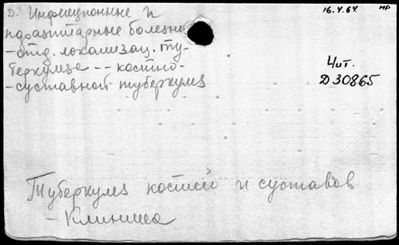 Д. Инфекционные и
паразитарные болезни
-отд. локализац. ту-
беркулеза -- костно-
-суставной туберкулез
16.4.64
Чит.
Д30865
Туберкулез костей и суставов
-Клиника